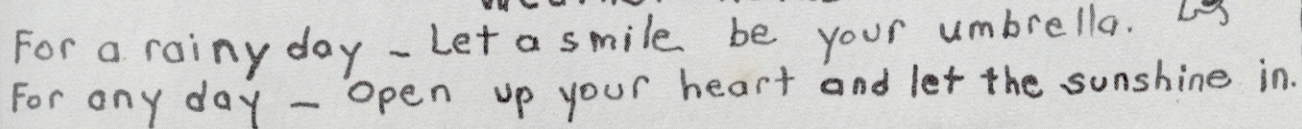 For a rainy day - Let a smile be your umbrella.
For any day - Open up your heart and let the sunshine in.